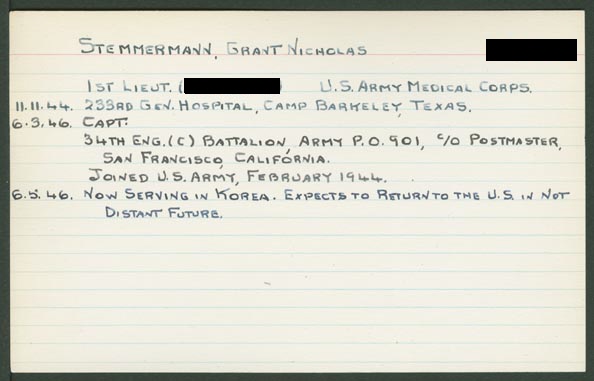 STEMMERMANN, GRANT NICHOLAS
1ST LIEUT. ( ) U.S. ARMY MEDICAL CORPS.
11.11.44. 233RD GEN. HOSPITAL, CAMP BARKELEY, TEXAS.
6.3.46. CAPT.
34TH ENG. (C) BATTALION, ARMY P.O. 901, C/O POSTMASTER,
SAN FRANCISCO, CALIFORNIA.
JOINED U.S. ARMY, FEBRUARY 1944.
6.5.46. NOW SERVING IN KOREA. EXPECTS TO RETURN TO THE U.S. IN NOT
DISTANT FUTURE.